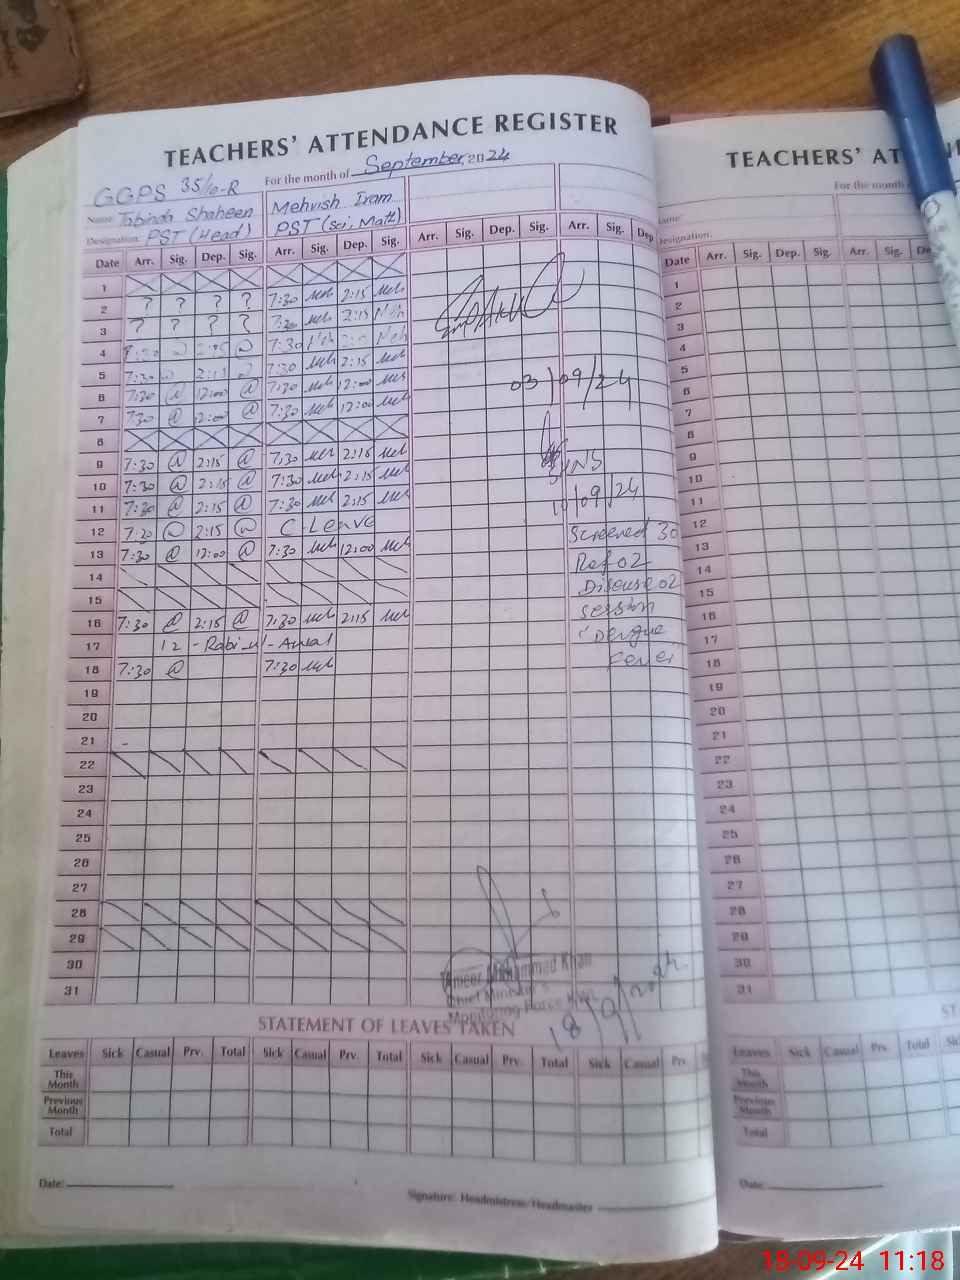 TEACHERS' ATTENDANCE REGISTER
For the month of September 2024
GGPS 35/10-R
Name: Tabinda Shaheen Mehvish Iram
Designation: PST (Head) PST (Sci, Math)
Date Arr. Sig. Dep. Sig. Arr. Sig. Dep. Sig. Arr. Sig. Dep. Sig. Arr. Sig. Dep
1
2 ? ? ? ? 7:30 Meh 2:15 Meh
3 ? ? ? ? 7:30 Meh 2:15 Meh
4 7:30 @ 2:15 @ 7:30 Meh Meh
5 7:30 @ 2:15 7:30 Meh 2:15 Meh
6 7:30 @ 12:00 @ 7:30 Meh 12:00 Meh
7 7:30 @ 12:00 @ 7:30 Meh 12:00 Meh
8
9 7:30 @ 2:15 @ 7:30 Meh 2:15 Meh
10 7:30 @ 2:15 @ 7:30 Meh 2:15 Meh
11 7:30 @ 2:15 @ 7:30 Meh 2:15 Meh
12 7:30 @ 2:15 @ C-Leave
13 7:30 @ 12:00 @ 7:30 Meh 12:00 Meh
14
15
16 7:30 @ 2:15 @ 7:30 Meh 2:15 Meh
17 12-Rabi-ul-Awal
18 7:30 @ 7:30 Meh
19
20
21
22
23
24
25
26
27
28
29
30
31
03/09/24
SHNS
10/09/24
Screened 30
Ref 02
Disease 02
session
"Dengue
Fever
Ameer Muhammed Khan
Chief Minister's
Monitoring Force
18/9/2024
STATEMENT OF LEAVES TAKEN
Leaves Sick Casual Prv. Total Sick Casual Prv. Total Sick Casual Prv. Total Sick Casual Prv.
This Month
Previous Month
Total
Date:
Signature: Headmistress/Headmaster
TEACHERS'
For the month
Name:
Designation:
Date Arr. Sig. Dep. Sig. Arr. Sig.
1
2
3
4
5
6
7
8
9
10
11
12
13
14
15
16
17
18
19
20
21
22
23
24
25
26
27
28
29
30
31
Leaves Sick Casual Prv. Total
This Month
Previous Month
Total
Date:
18-09-24 11:18